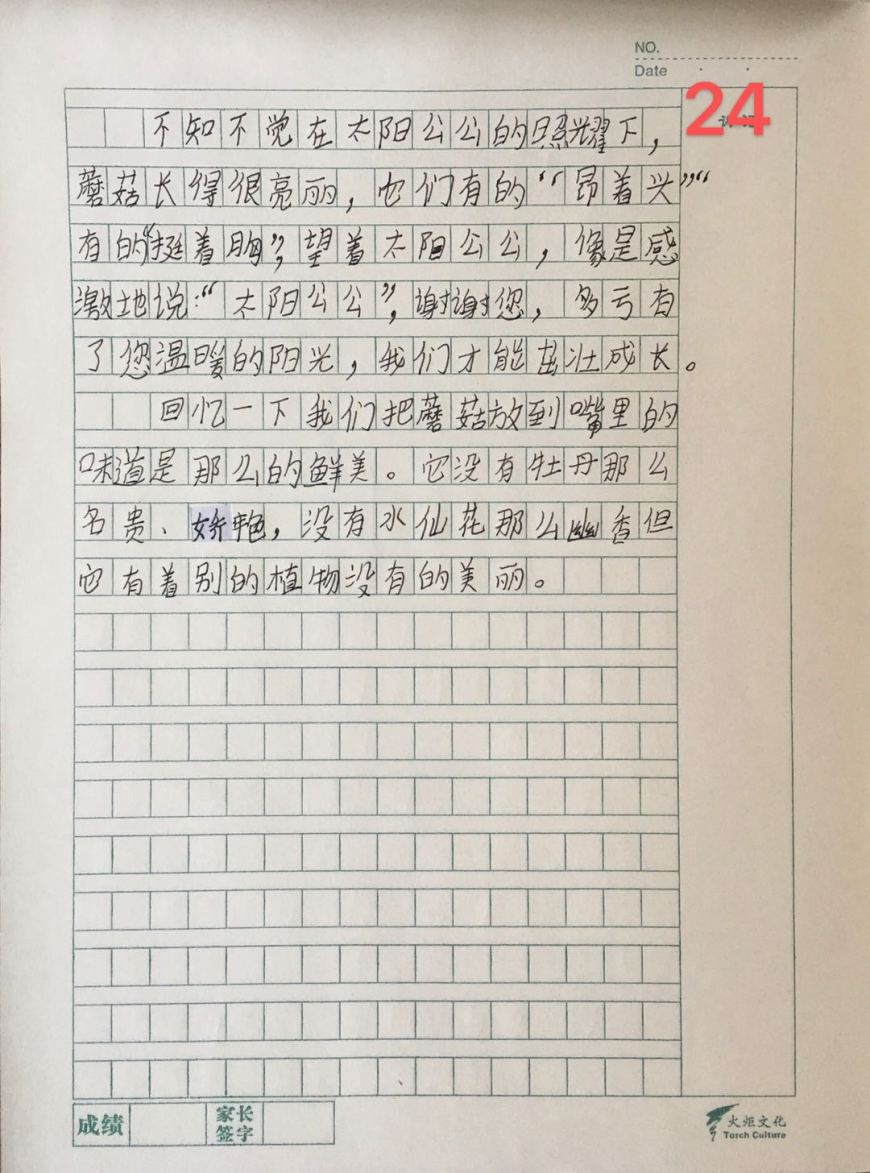 NO.
Date
24
不知不觉在太阳公公的照耀下，
蘑菇长得很亮丽，它们有的“昂着兴”“
有的“挺着胸”，望着太阳公公，像是感
激地说：“太阳公公”，谢谢您，多亏有
了您温暖的阳光，我们才能茁壮成长。
回忆一下我们把蘑菇放到嘴里的
味道是那么的鲜美。它没有牡丹那么
名贵、娇艳，没有水仙花那么幽香但
它有着别的植物没有的美丽。
成绩
家长
签字
火炬文化
Torch Culture